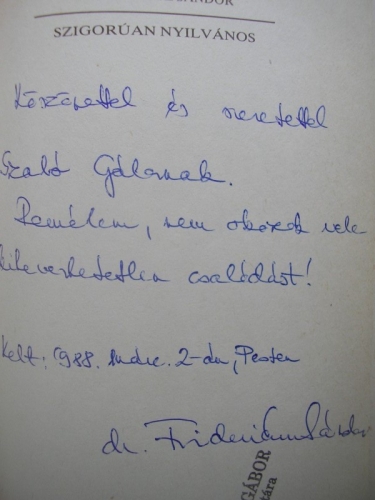 SÁNDOR
SZIGORÚAN NYILVÁNOS
és szeretettel
Szabó Gábornak.
Remélem, nem okozok vele
kiheverhetetlen csalódást!
Kelt: 1988. márc. 2-án, Pesten
dr. Friderikusz Sándor
GÁBOR
tára